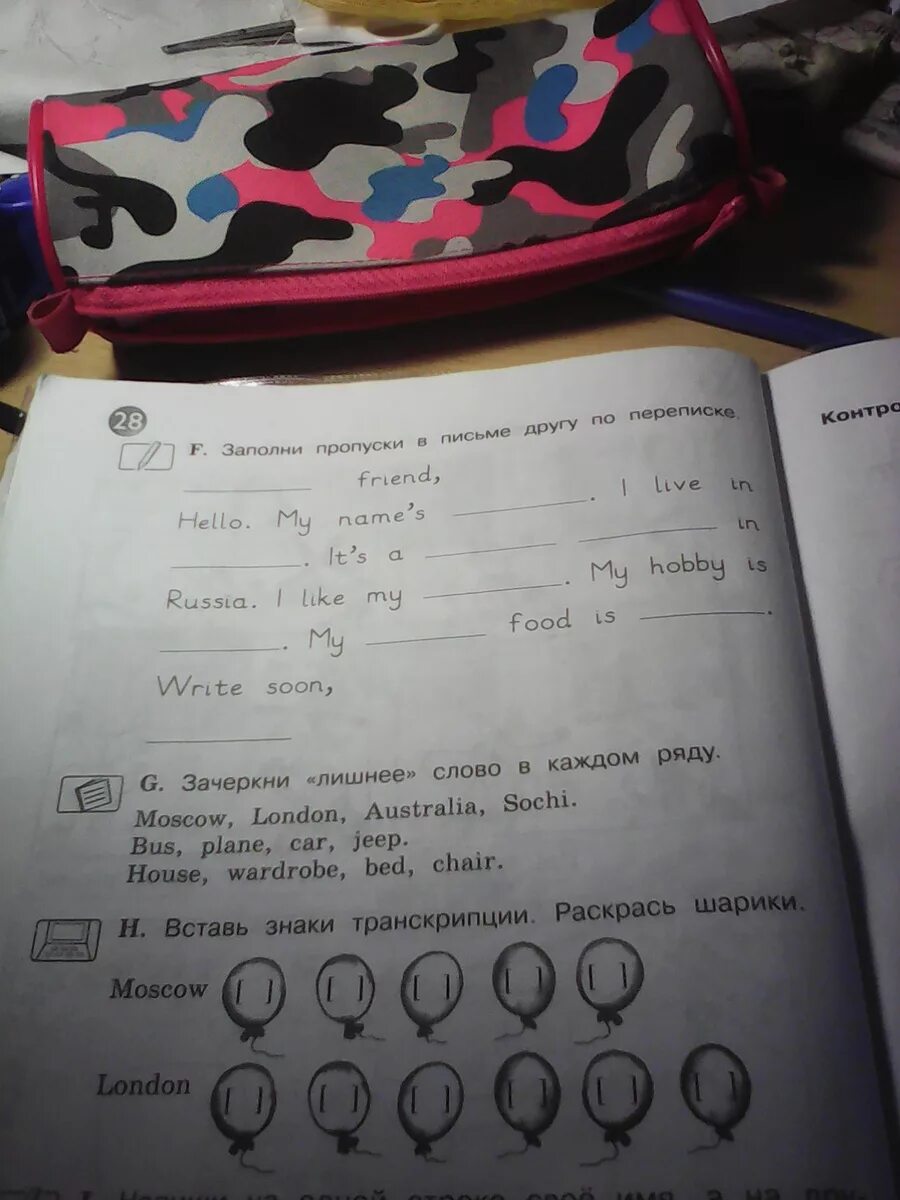 28
Контро
F. Заполни пропуски в письме другу по переписке.
____ friend,
Hello. My name's ____. I live in
____. It's a ____ ____ in
Russia. I like my ____. My hobby is
____. My ____ food is ____.
Write soon,
____
G. Зачеркни «лишнее» слово в каждом ряду.
Moscow, London, Australia, Sochi.
Bus, plane, car, jeep.
House, wardrobe, bed, chair.
H. Вставь знаки транскрипции. Раскрась шарики.
Moscow [ ] [ ] [ ] [ ] [ ]
London [ ] [ ] [ ] [ ] [ ] [ ]